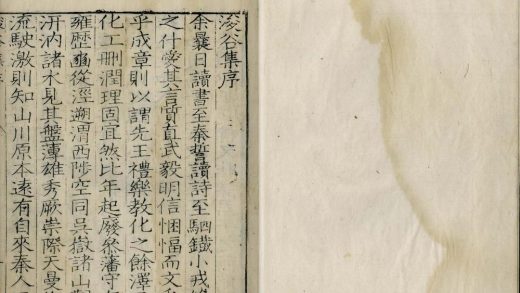 浚谷集序
余曩日讀書至秦誓讀詩至駟鐵小戎
之什愛其言質直武毅明信悃愊而文
乎成章則以謂先王禮樂教化之餘澤
化工刪潤理固宜然比年起廢叅藩守
雍歷豳從涇遡渭西陟空同吳嶽諸山
汧汭諸水見其盤薄雄秀厥崇際天曼
流駛激則知山川原本遠有自來秦人